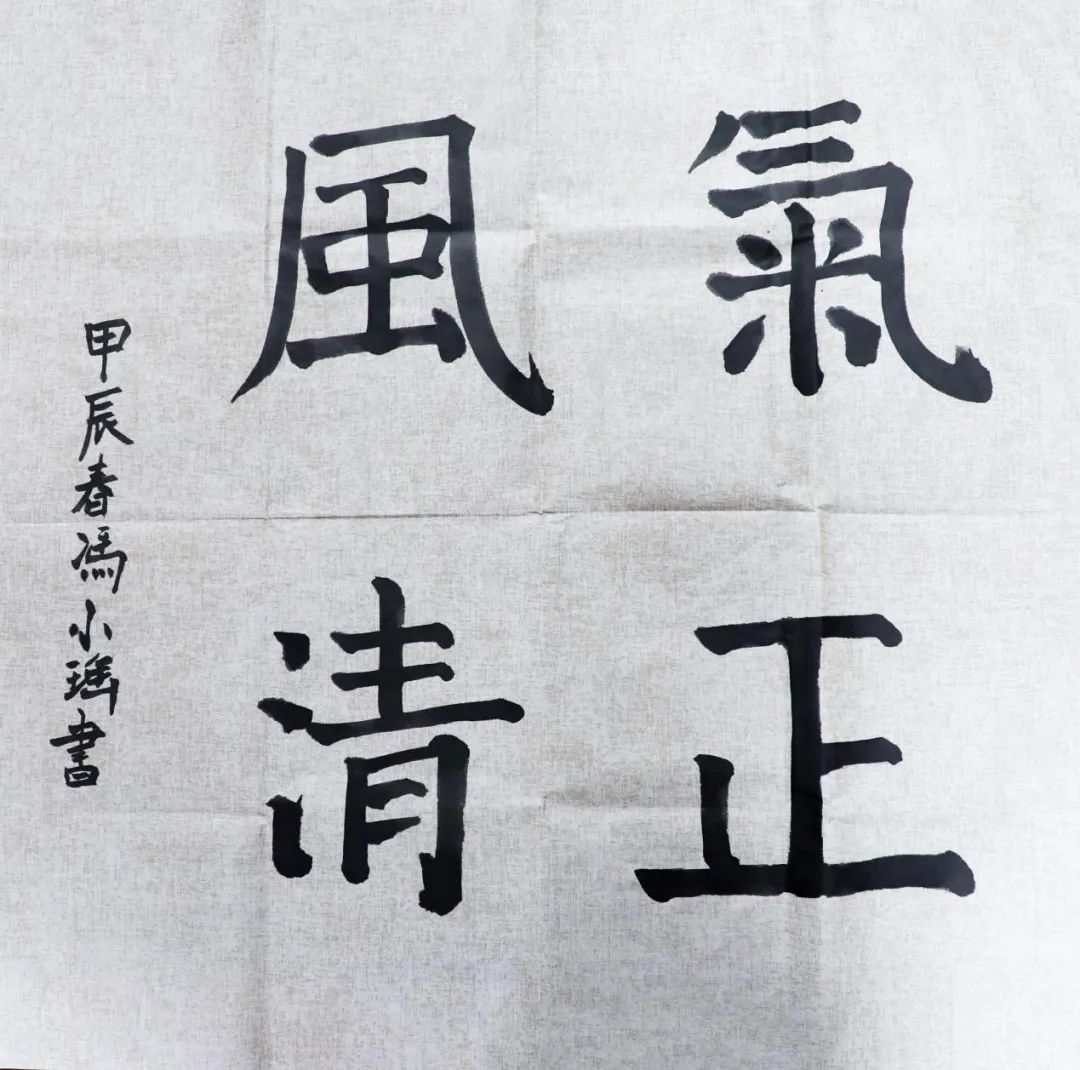 氣正
風清
甲辰春馮小瑶書